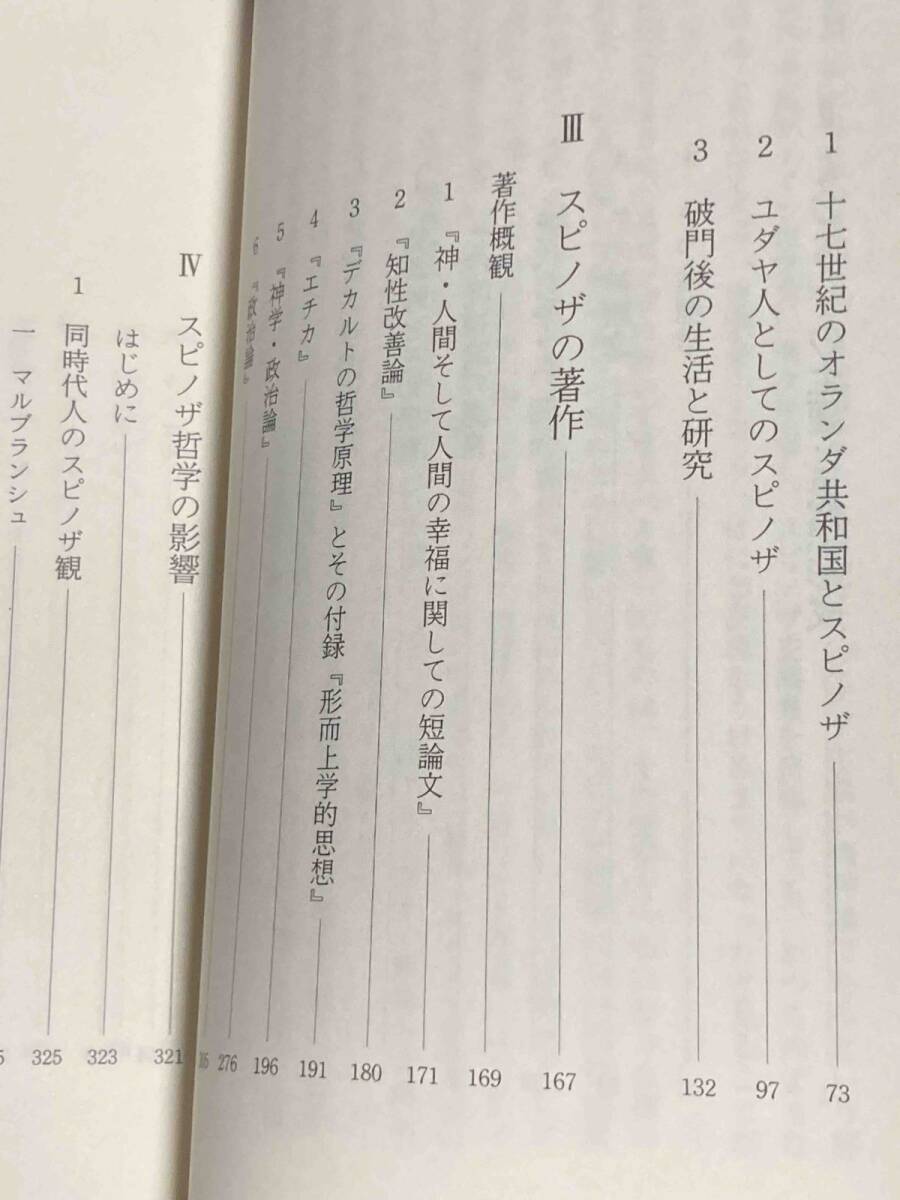 1 十七世紀のオランダ共和国とスピノザ 73
2 ユダヤ人としてのスピノザ 97
3 破門後の生活と研究 132
Ⅲ スピノザの著作 167
著作概観 169
1 『神・人間そして人間の幸福に関しての短論文』 171
2 『知性改善論』 180
3 『デカルトの哲学原理』とその付録『形而上学的思想』 191
4 『エチカ』 196
5 『神学・政治論』 276
6 『政治論』
Ⅳ スピノザ哲学の影響 321
はじめに 323
1 同時代人のスピノザ観 325
一 マルブランシュ